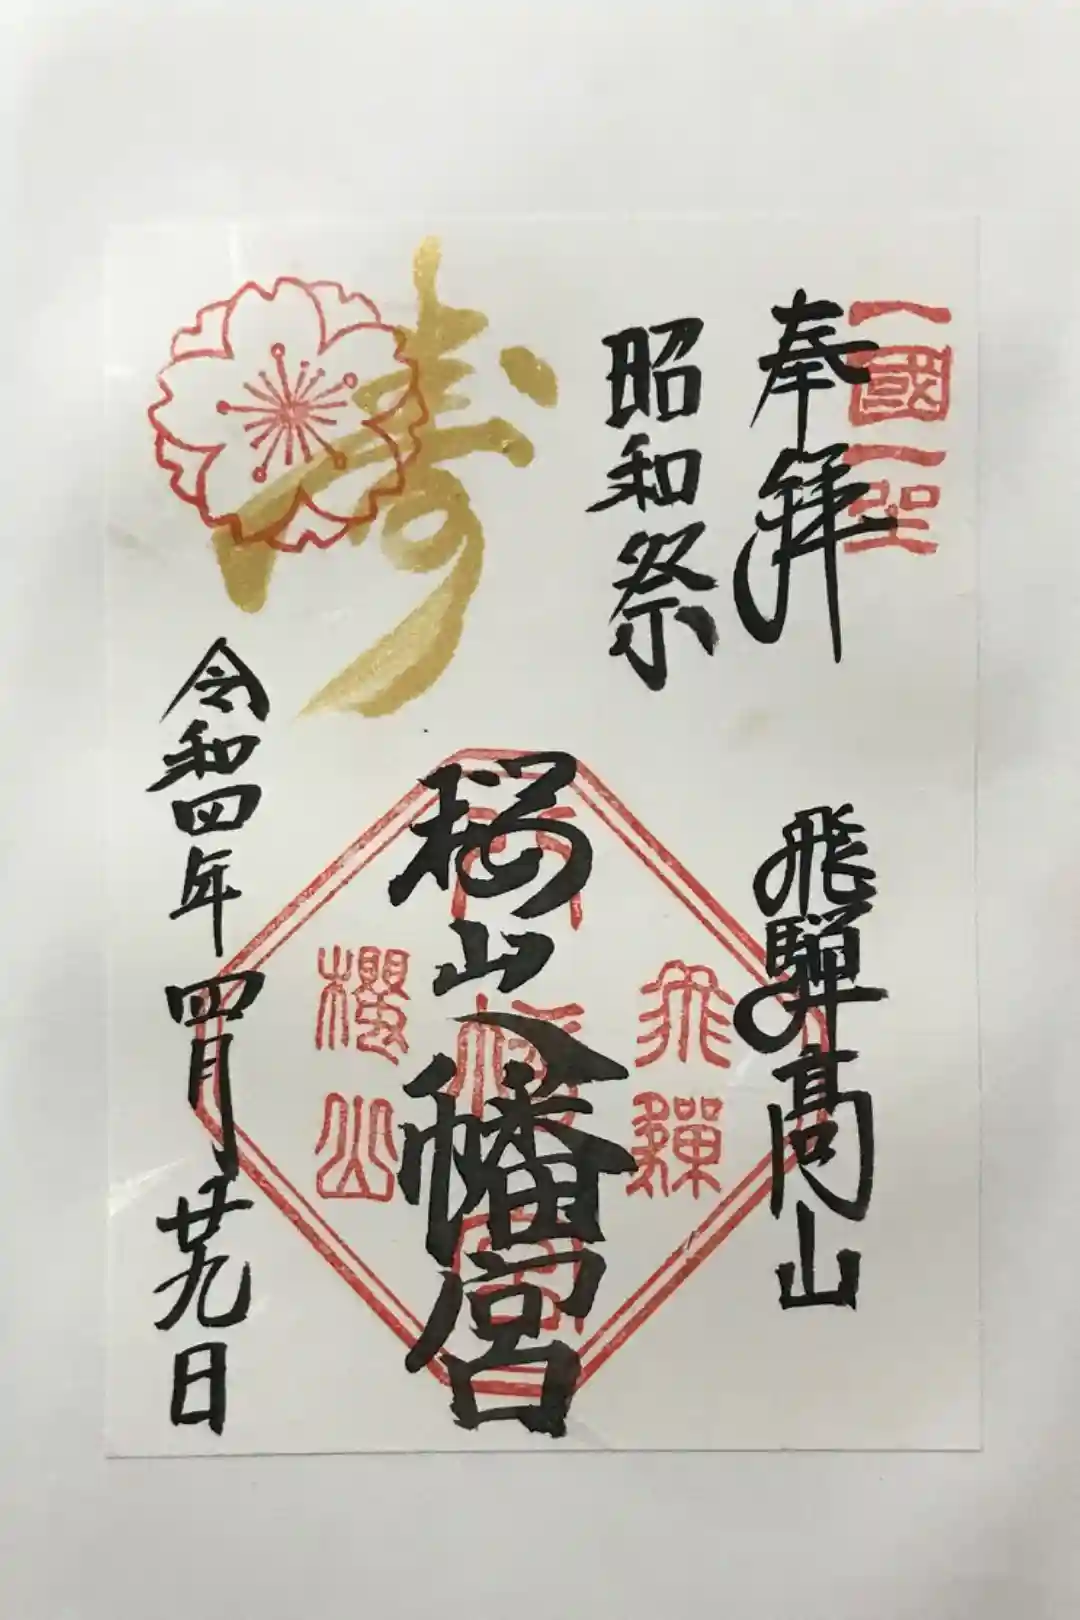 一國一社
奉拝
昭和祭
飛騨高山
櫻山八幡宮
八幡宮
飛騨
櫻山
寿
令和四年四月廿九日